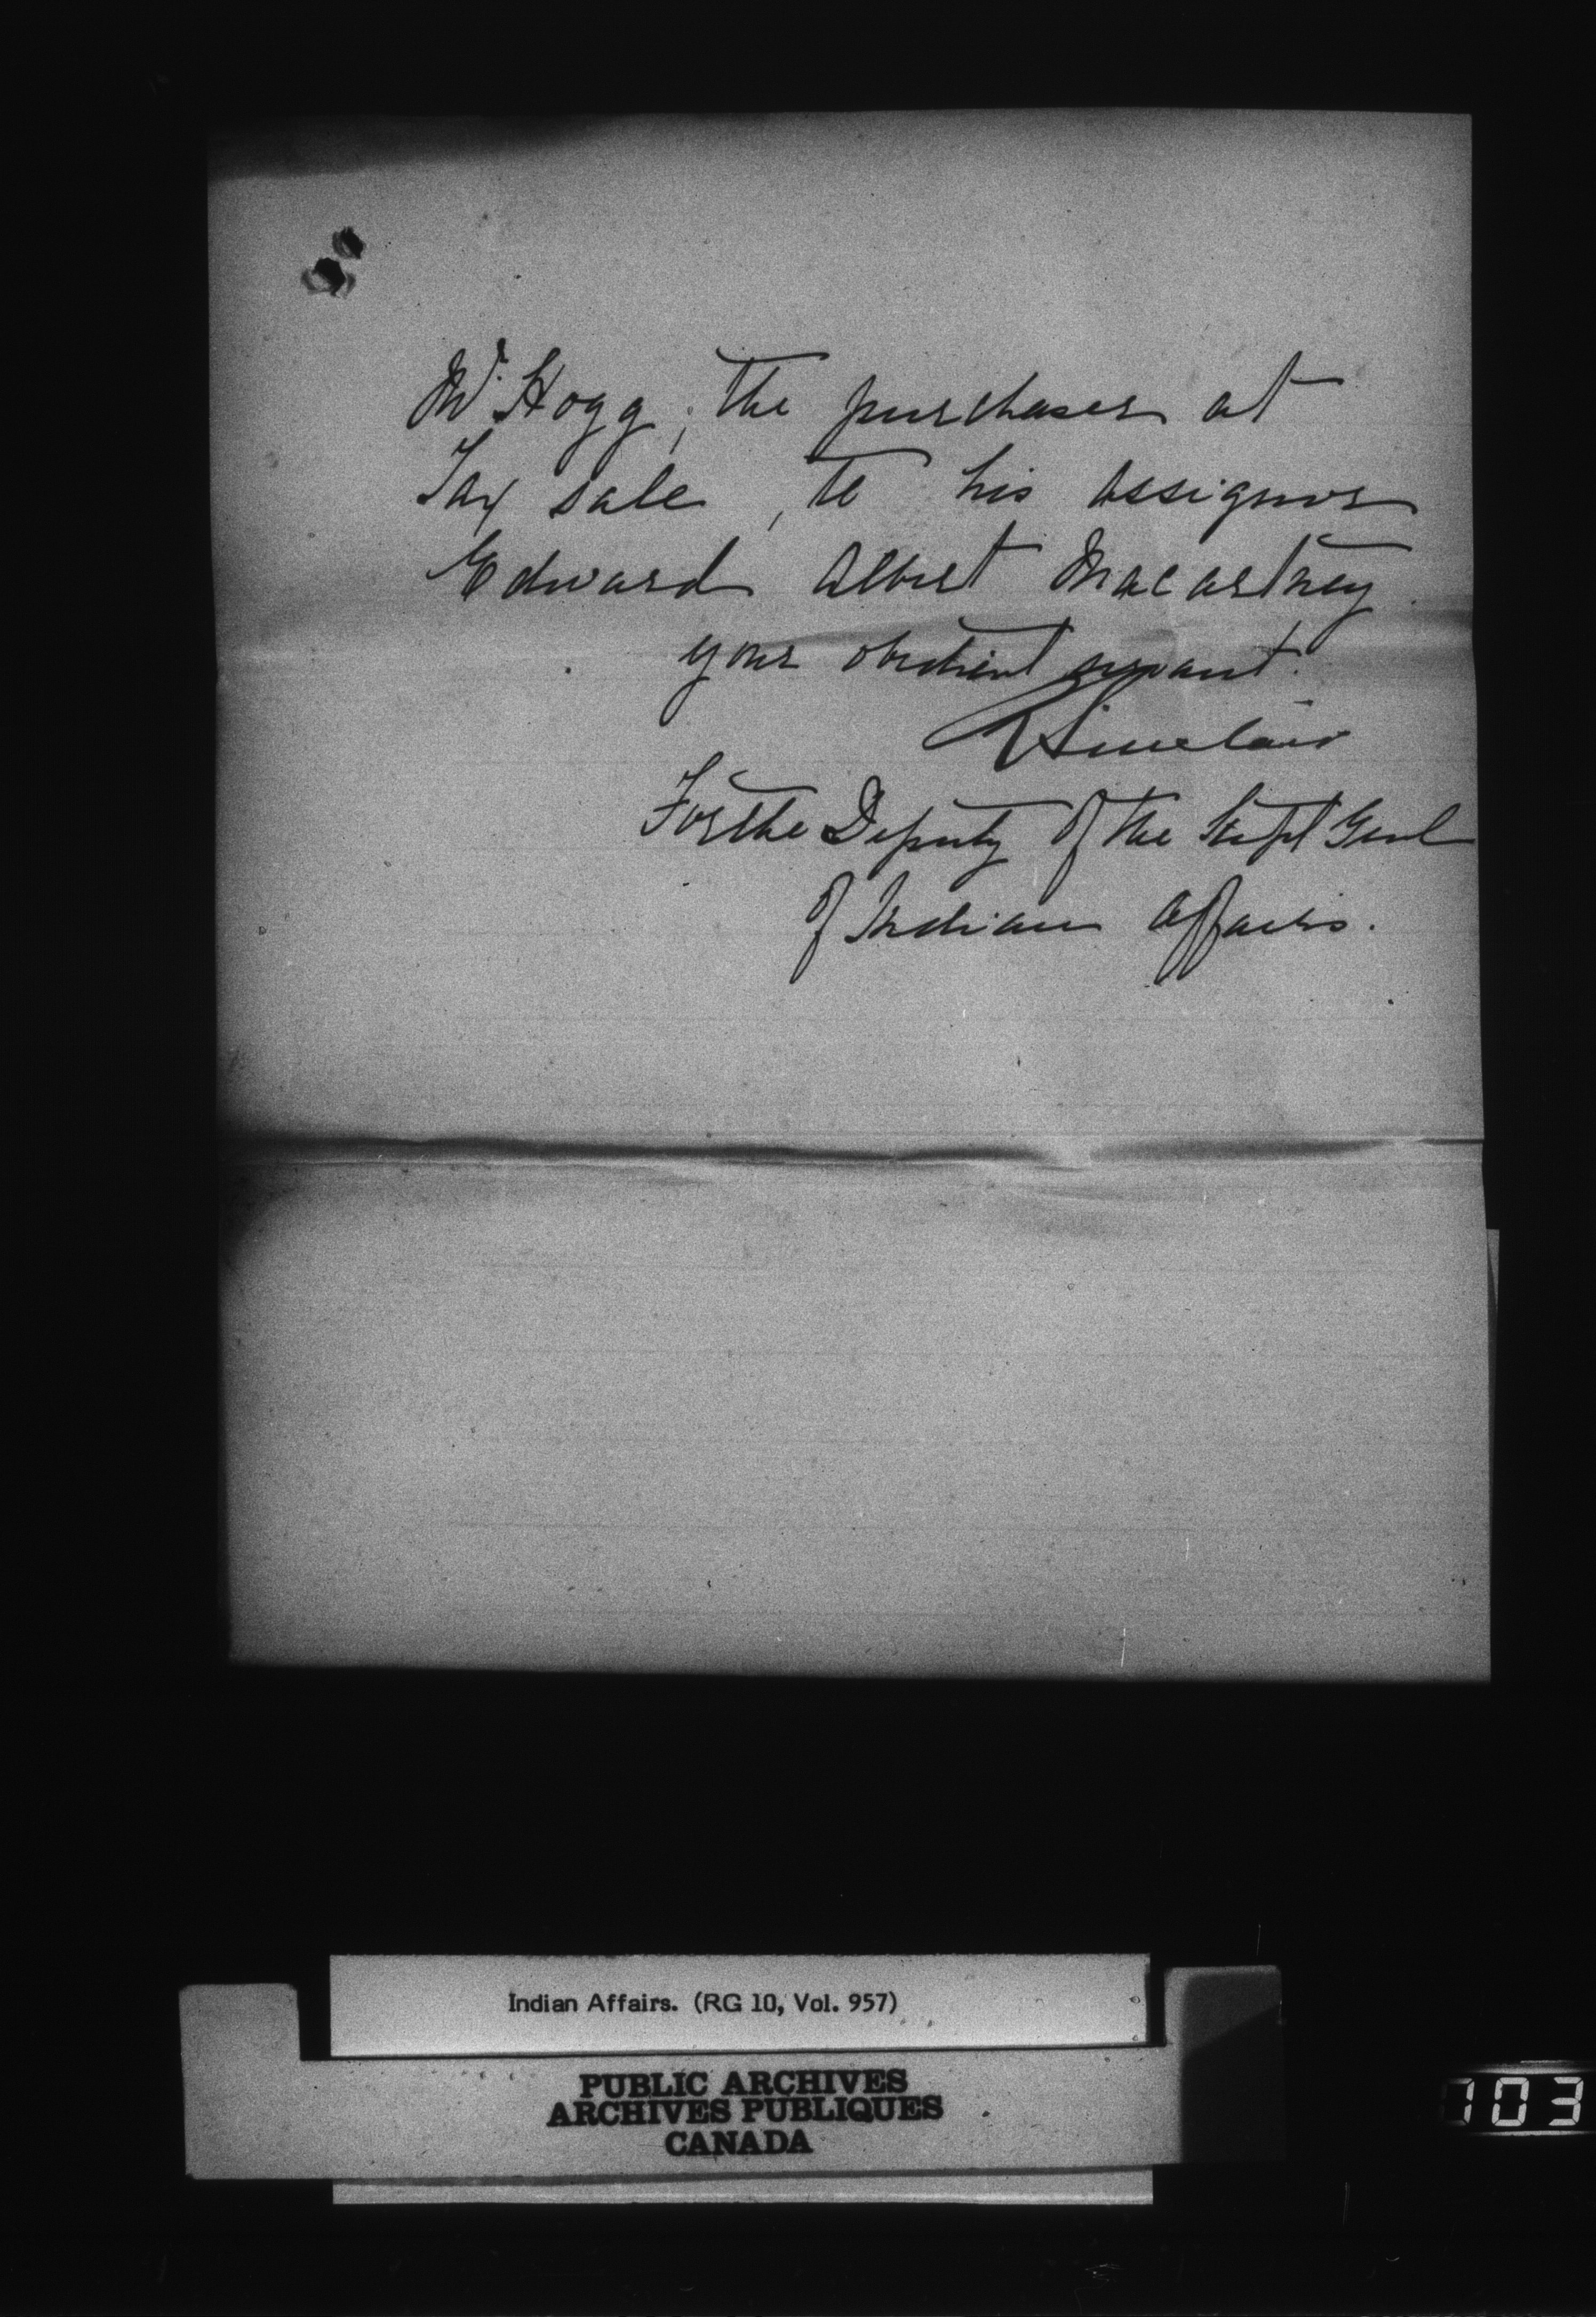 Mr. Hogg, the purchaser at
Tax sale, to his assignor
Edward Albert Macartney.
your obedient servant.
Sinclair
For the Deputy of the Supt Genl
of Indian Affairs.
Indian Affairs. (RG 10, Vol. 957)
PUBLIC ARCHIVES
ARCHIVES PUBLIQUES
CANADA
103